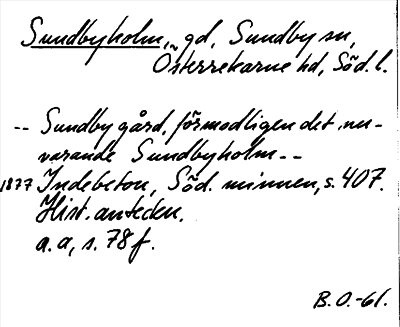 Sundbyholm, gd, Sundby sn,
Österrekarne hd, Söd. l.
-- Sundby gård, förmodligen det nu-
varande Sundbyholm --
1877 Indebetou, Söd. minnen, s. 407.
Hist. anteckn.
a. a, s. 78 f.
B. O.-61.